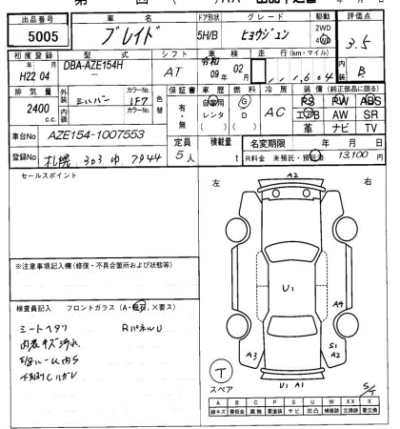 出品番号 車名 ドア形状 グレード 駆動 評価点
5005 ブレイド 5H/B ヒョウジュン 2WD 4WD 3.5
初度登録 型式 シフト 車検 走行(km・マイル) 内装
H22 04 DBA-AZE154H AT 令和 09年 02月 B
排気量 外装 カラーNo. 色替 保証書 車歴 燃料 冷房 装備(純正部品に限る)
2400 c.c. シルバー 1F7 有・無 自家用 G AC PS PW ABS
内装 カラーNo. レンタ D エアB AW SR
( ) ( ) 革 ナビ TV
車台No AZE154-1007553 定員 積載量 名変期限 年 月 日
登録No 札幌 303 ゆ 7944 5人 t R料金 未預託・預託済 13,100円
セールスポイント
左 右
A2
※注意事項記入欄(修復・不具合箇所および状態等)
U1
検査員記入 フロントガラス(A・飛石、×要ス)
A4
シートヘタリ Rパネル U
内装キズ汚れ
S1
A3 A2
下廻りCハガレ
T
スペア
U1 A1
S/T
A B C P S U W XX X
線キズ 要板金 腐食 要塗装 サビ 凹凸 補修跡 交換跡 要交換